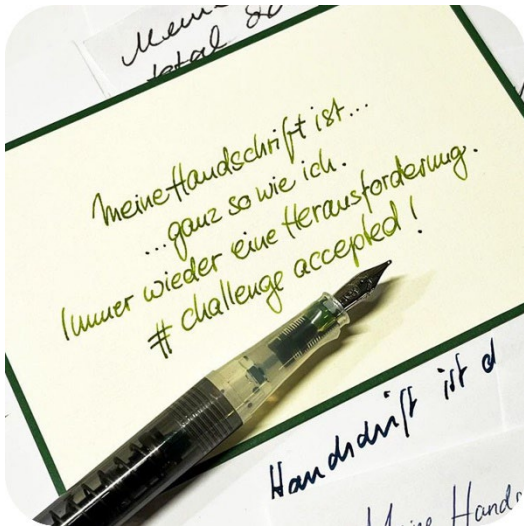 Meine
total
meine Handschrift ist...
...ganz so wie ich.
Immer wieder eine Herausforderung.
# challenge accepted!
Handschrift ist d
Meine Hands